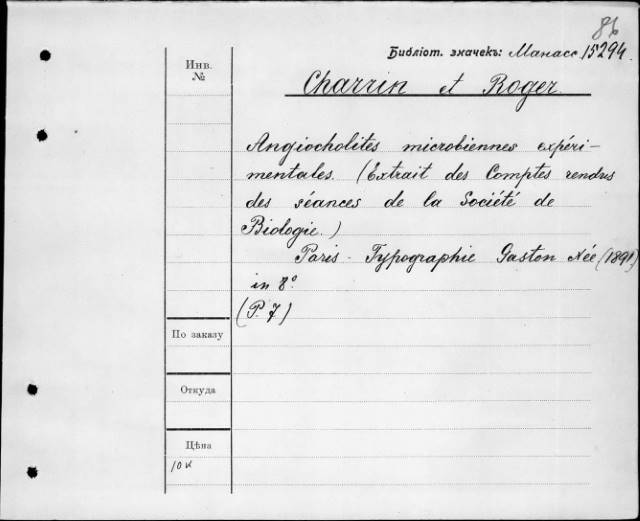 86
Библіот. значекъ: Манасс 15294.
Инв.
№
Charrin et Roger
Angiocholites microbiennes expéri-
mentales. (Extrait des Comptes rendus
des séances de la Société de
Biologie.)
Paris - Typographie Gaston Née (1891)
in 8°
(P. 7)
По заказу
Откуда
Цѣна
10 к